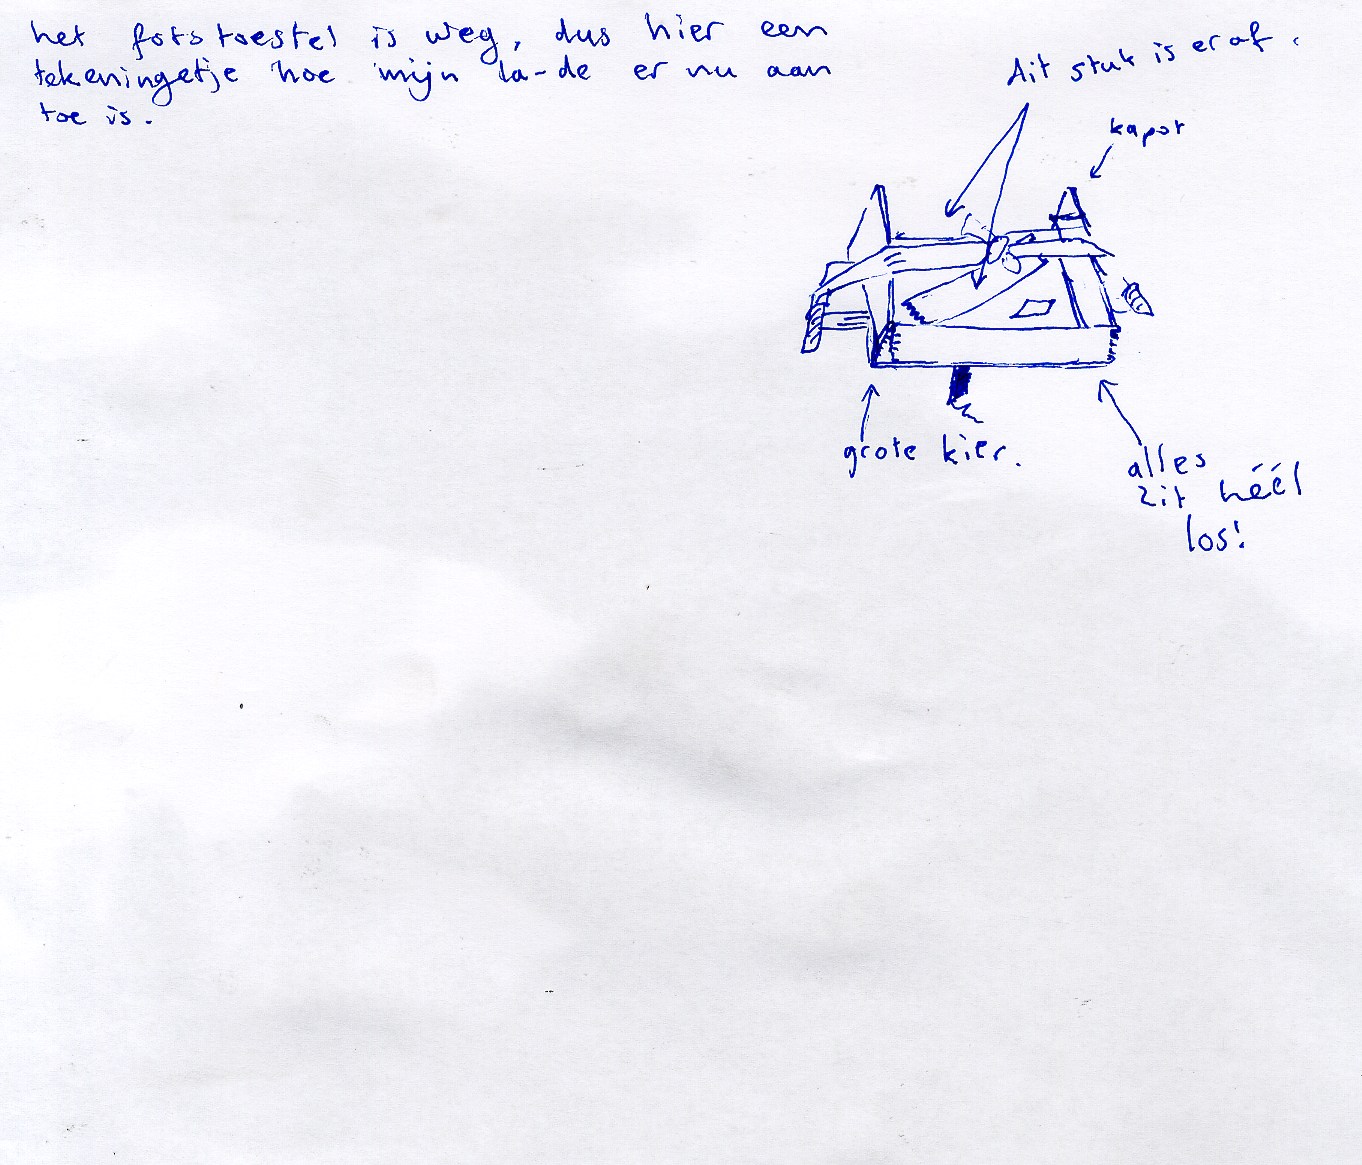 het fototoestel is weg, dus hier een
tekeningetje hoe mijn la-de er nu aan
toe is.
dit stuk is eraf.
kapot
grote kier.
alles
zit héél
los!